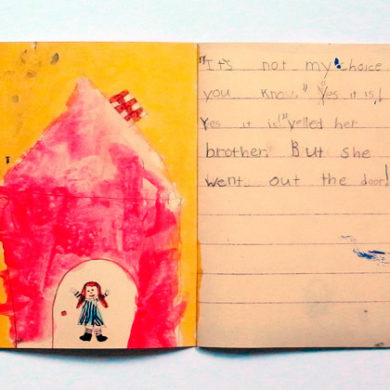 "It's not my choice
you know." Yes it is!
Yes it is!" yelled her
brother. But she
went out the door!